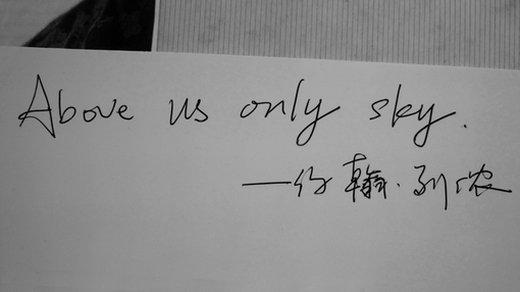 Above us only sky.
——约翰·列侬